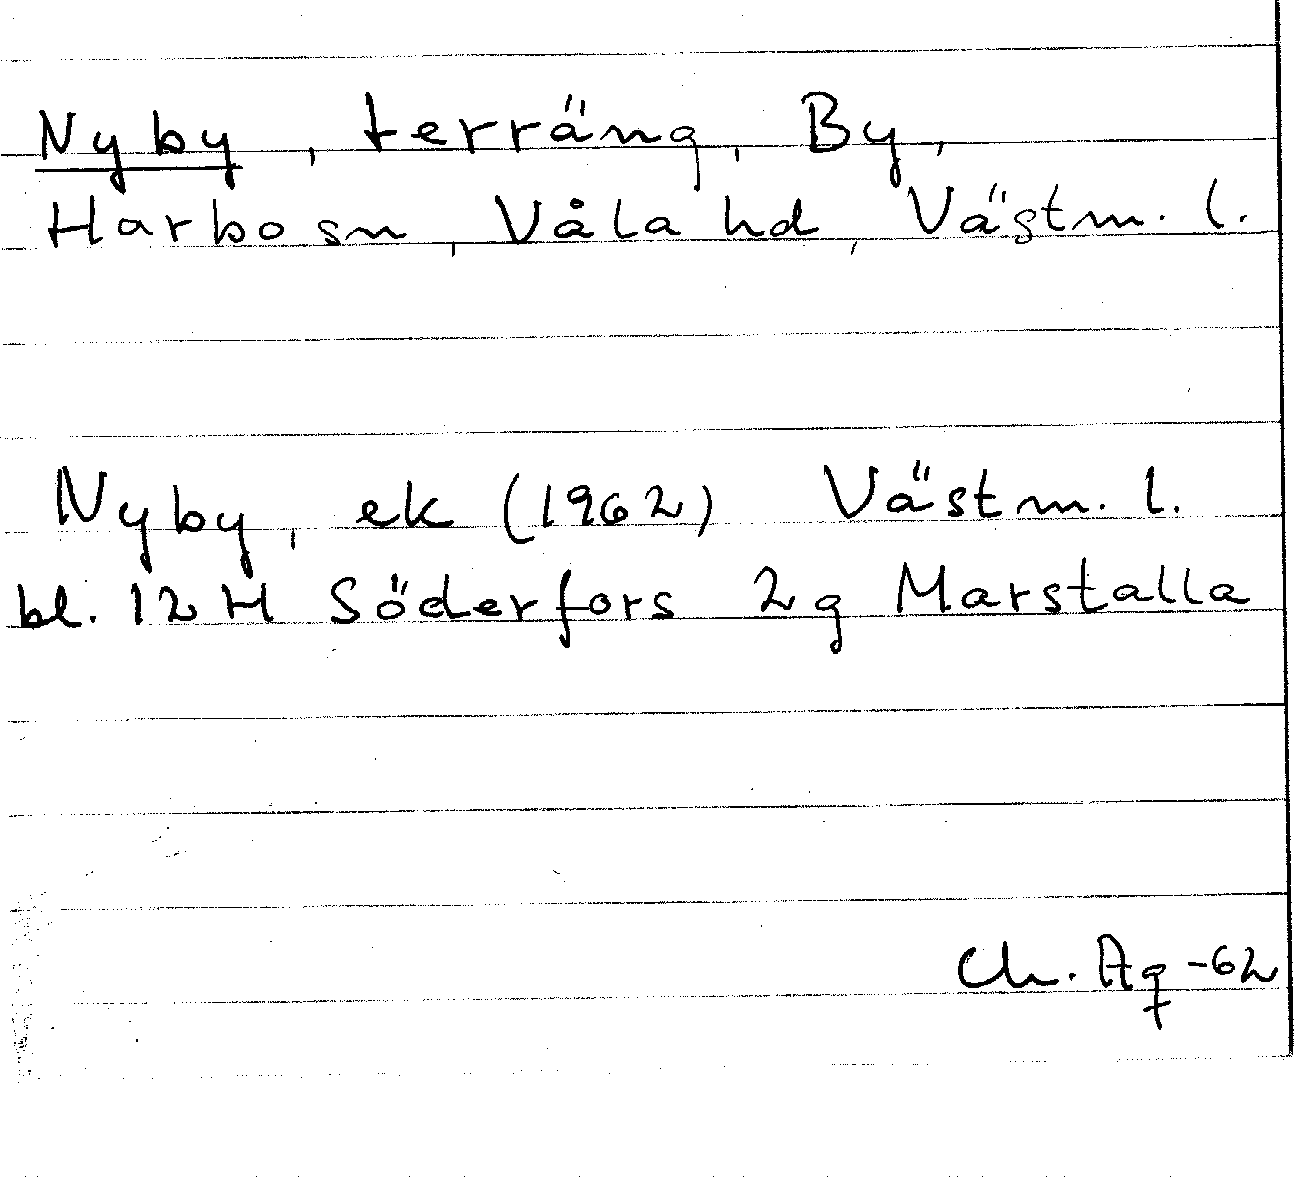 Nyby, terräng, By,
Harbo sn, Våla hd, Västm. l.
Nyby, ek (1962) Västm. l.
bl. 12 H Söderfors 2 g Marstalla
Ch. Aq -62